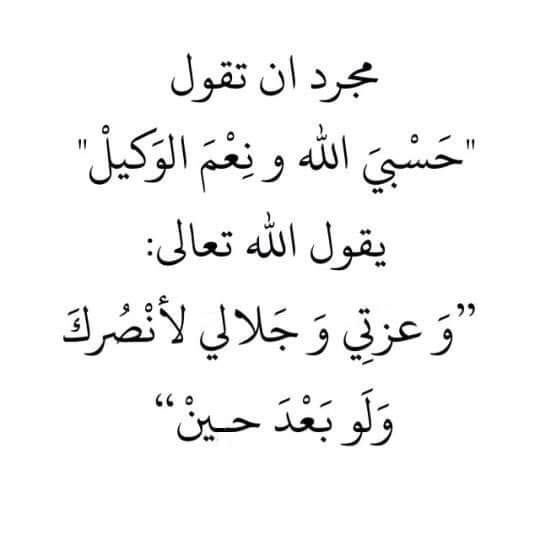 مجرد ان تقول
"حَسْبيَ الله و نِعْمَ الوَكيلْ"
يقول الله تعالى:
”وَ عزتِي وَ جَلالي لأنْصُركَ
وَلَو بَعْدَ حـينْ“